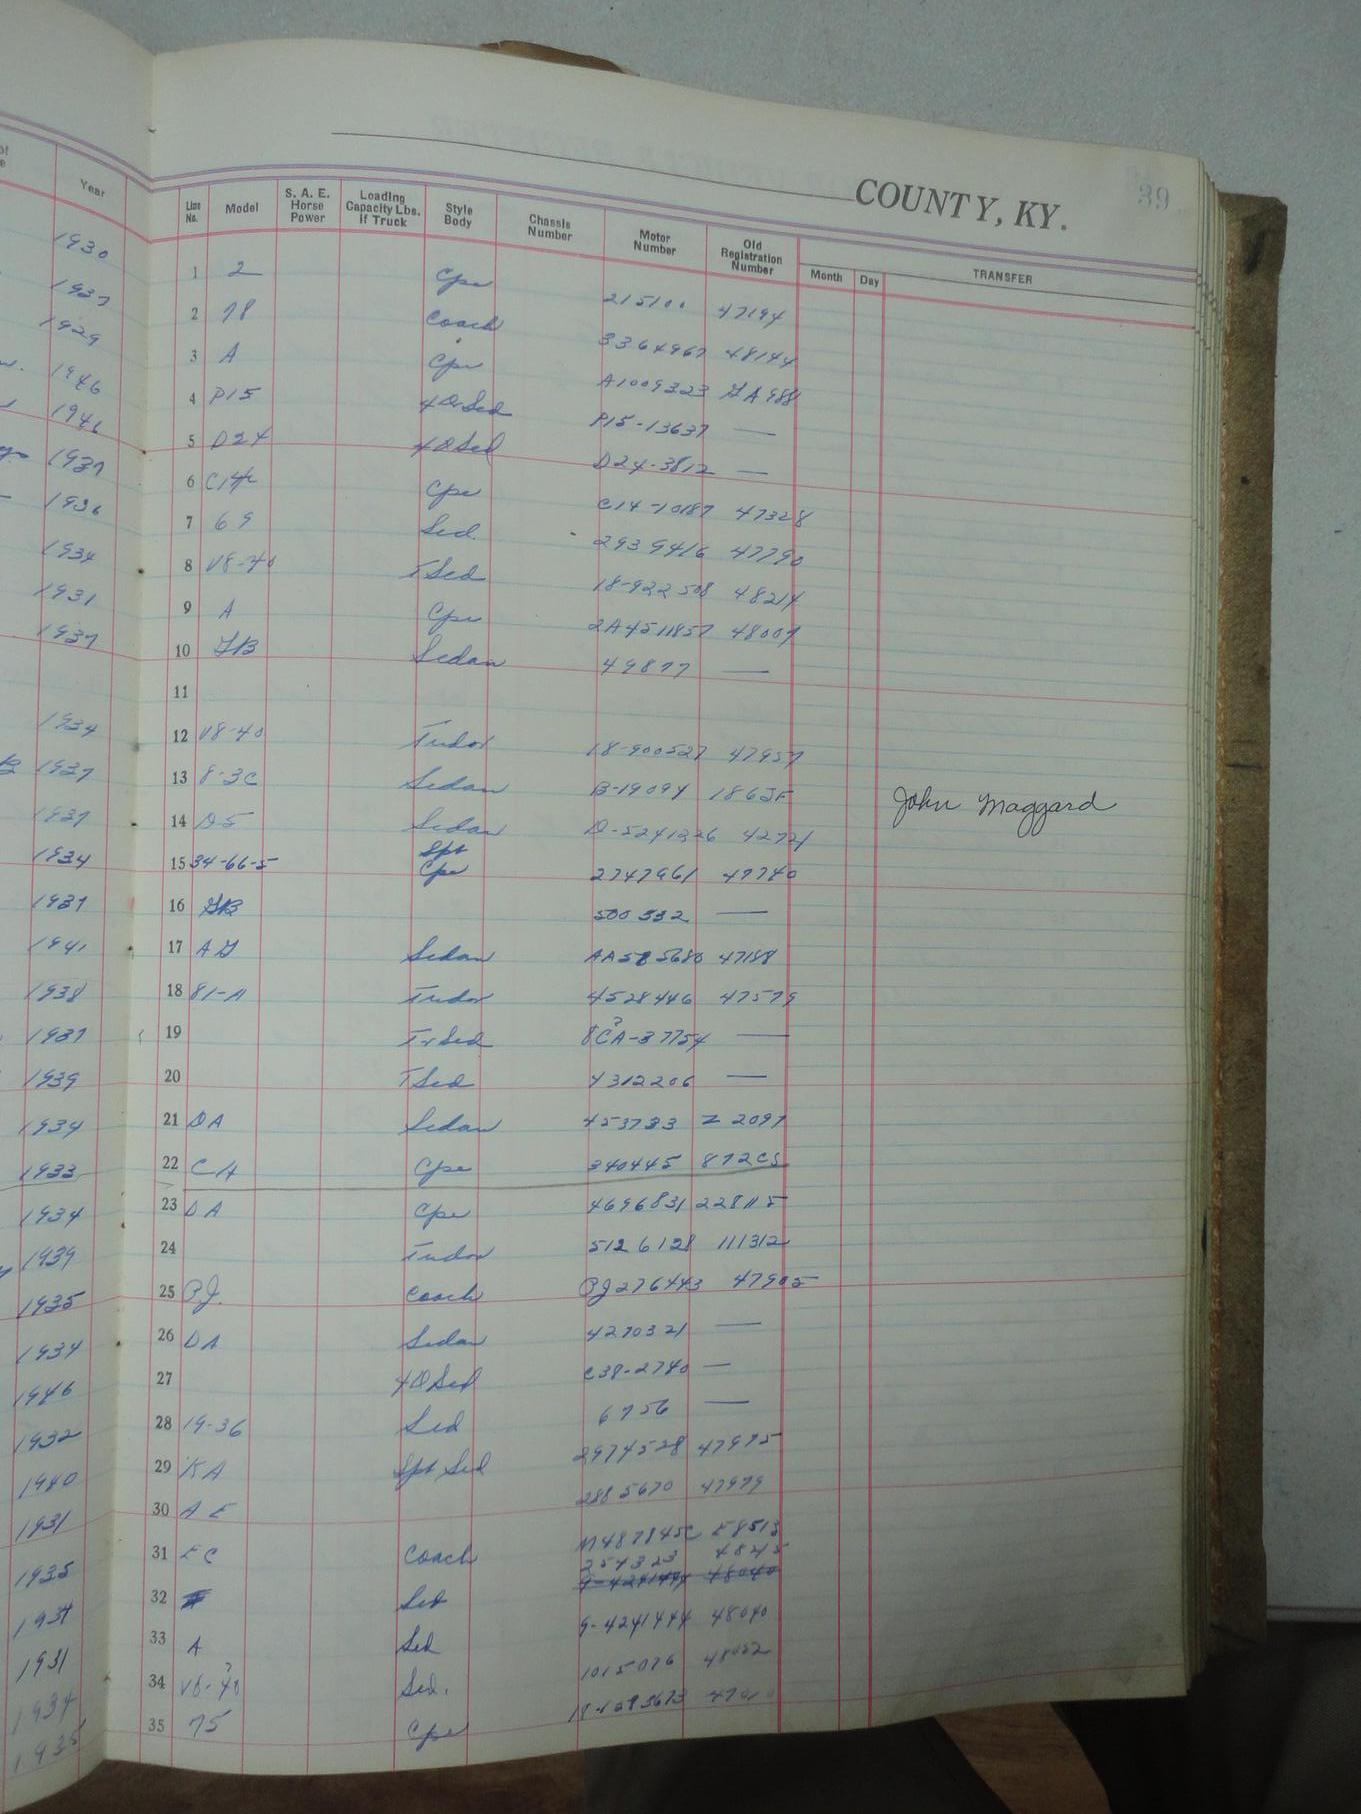 COUNTY, KY.
39
Year
Line No. Model S. A. E. Horse Power Loading Capacity Lbs. if Truck Style Body Chassis Number Motor Number Old Registration Number Month Day TRANSFER
1930 1 2 Cpe 215100 47194
1937 2 78 Coach 3364967 48144
1929 3 A Cpe A1009323
1946 4 P15 4 D Sed P15-13637 —
1946 5 D24 4 D Sed D24-3812 —
1937 6 Cpe C14-10187 47328
1936 7 69 Sed. 2939416 47790
1934 8 V8-40 T Sed 18-922508 48214
1931 9 A Cpe 2A4511857 48007
1937 10 GB Sedan 49877 —
11
1934 12 V8-40 Tudor 18-900527 47957
1937 13 8-3C Sedan B-19094 1863F John Maggard
1937 14 D5 Sedan D-5241326 42721
1934 15 34-66-5 Spt Cpe 2747961 47740
1937 16 GB 500332 —
1941 17 AG Sedan AA585680 47188
1938 18 81-A Tudor 4528446 47579
1937 19 Tr Sed 8CA-37754 —
1939 20 T Sed 4312206 —
1934 21 DA Sedan 453733 Z 2097
1933 22 CA Cpe 340445 872CS
1934 23 DA Cpe 4696831 228115
1939 24 Tudor 5126128 111312
1935 25 P.J. Coach PJ276443 47905
1934 26 DA Sedan 4270321 —
1946 27 4 D Sed C38-2740 —
1932 28 19-36 Sed 6756 —
1940 29 KA Spt Sed 2974528 47975
1931 30 A E 2885670 47979
1935 31 EC Coach M487845C E8513
1937 32 Sed 254323
1931 33 A Sed 9-4241444 48040
1934 34 V8-40 Sed. 1015076 48052
1935 35 75 Cpe